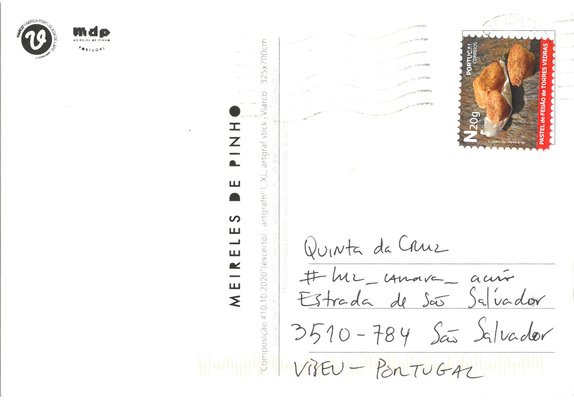 VIARCO
mdp
MEIRELES DE PINHO
PORTUGAL
MEIRELES DE PINHO
Composição #10.10.2020"(excerto) artgrafnº1_XL, artgraf stick; Viarco 325x700cm
PORTUGAL
CORREIOS
N20g
PASTEL de FEIJÃO de TORRES VEDRAS
QUINTA da CRUZ
Estrada de São Salvador
3510-784 São Salvador
VISEU - PORTUGAL